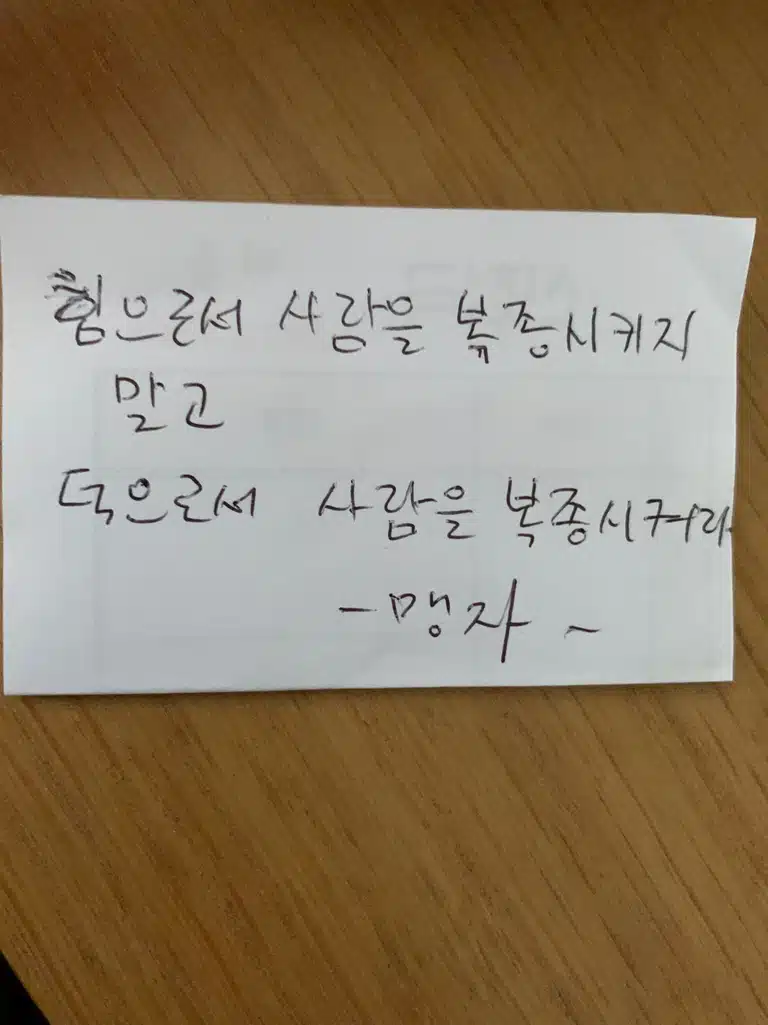 힘으로서 사람을 복종시키지
말고
덕으로서 사람을 복종시켜라
-맹자-